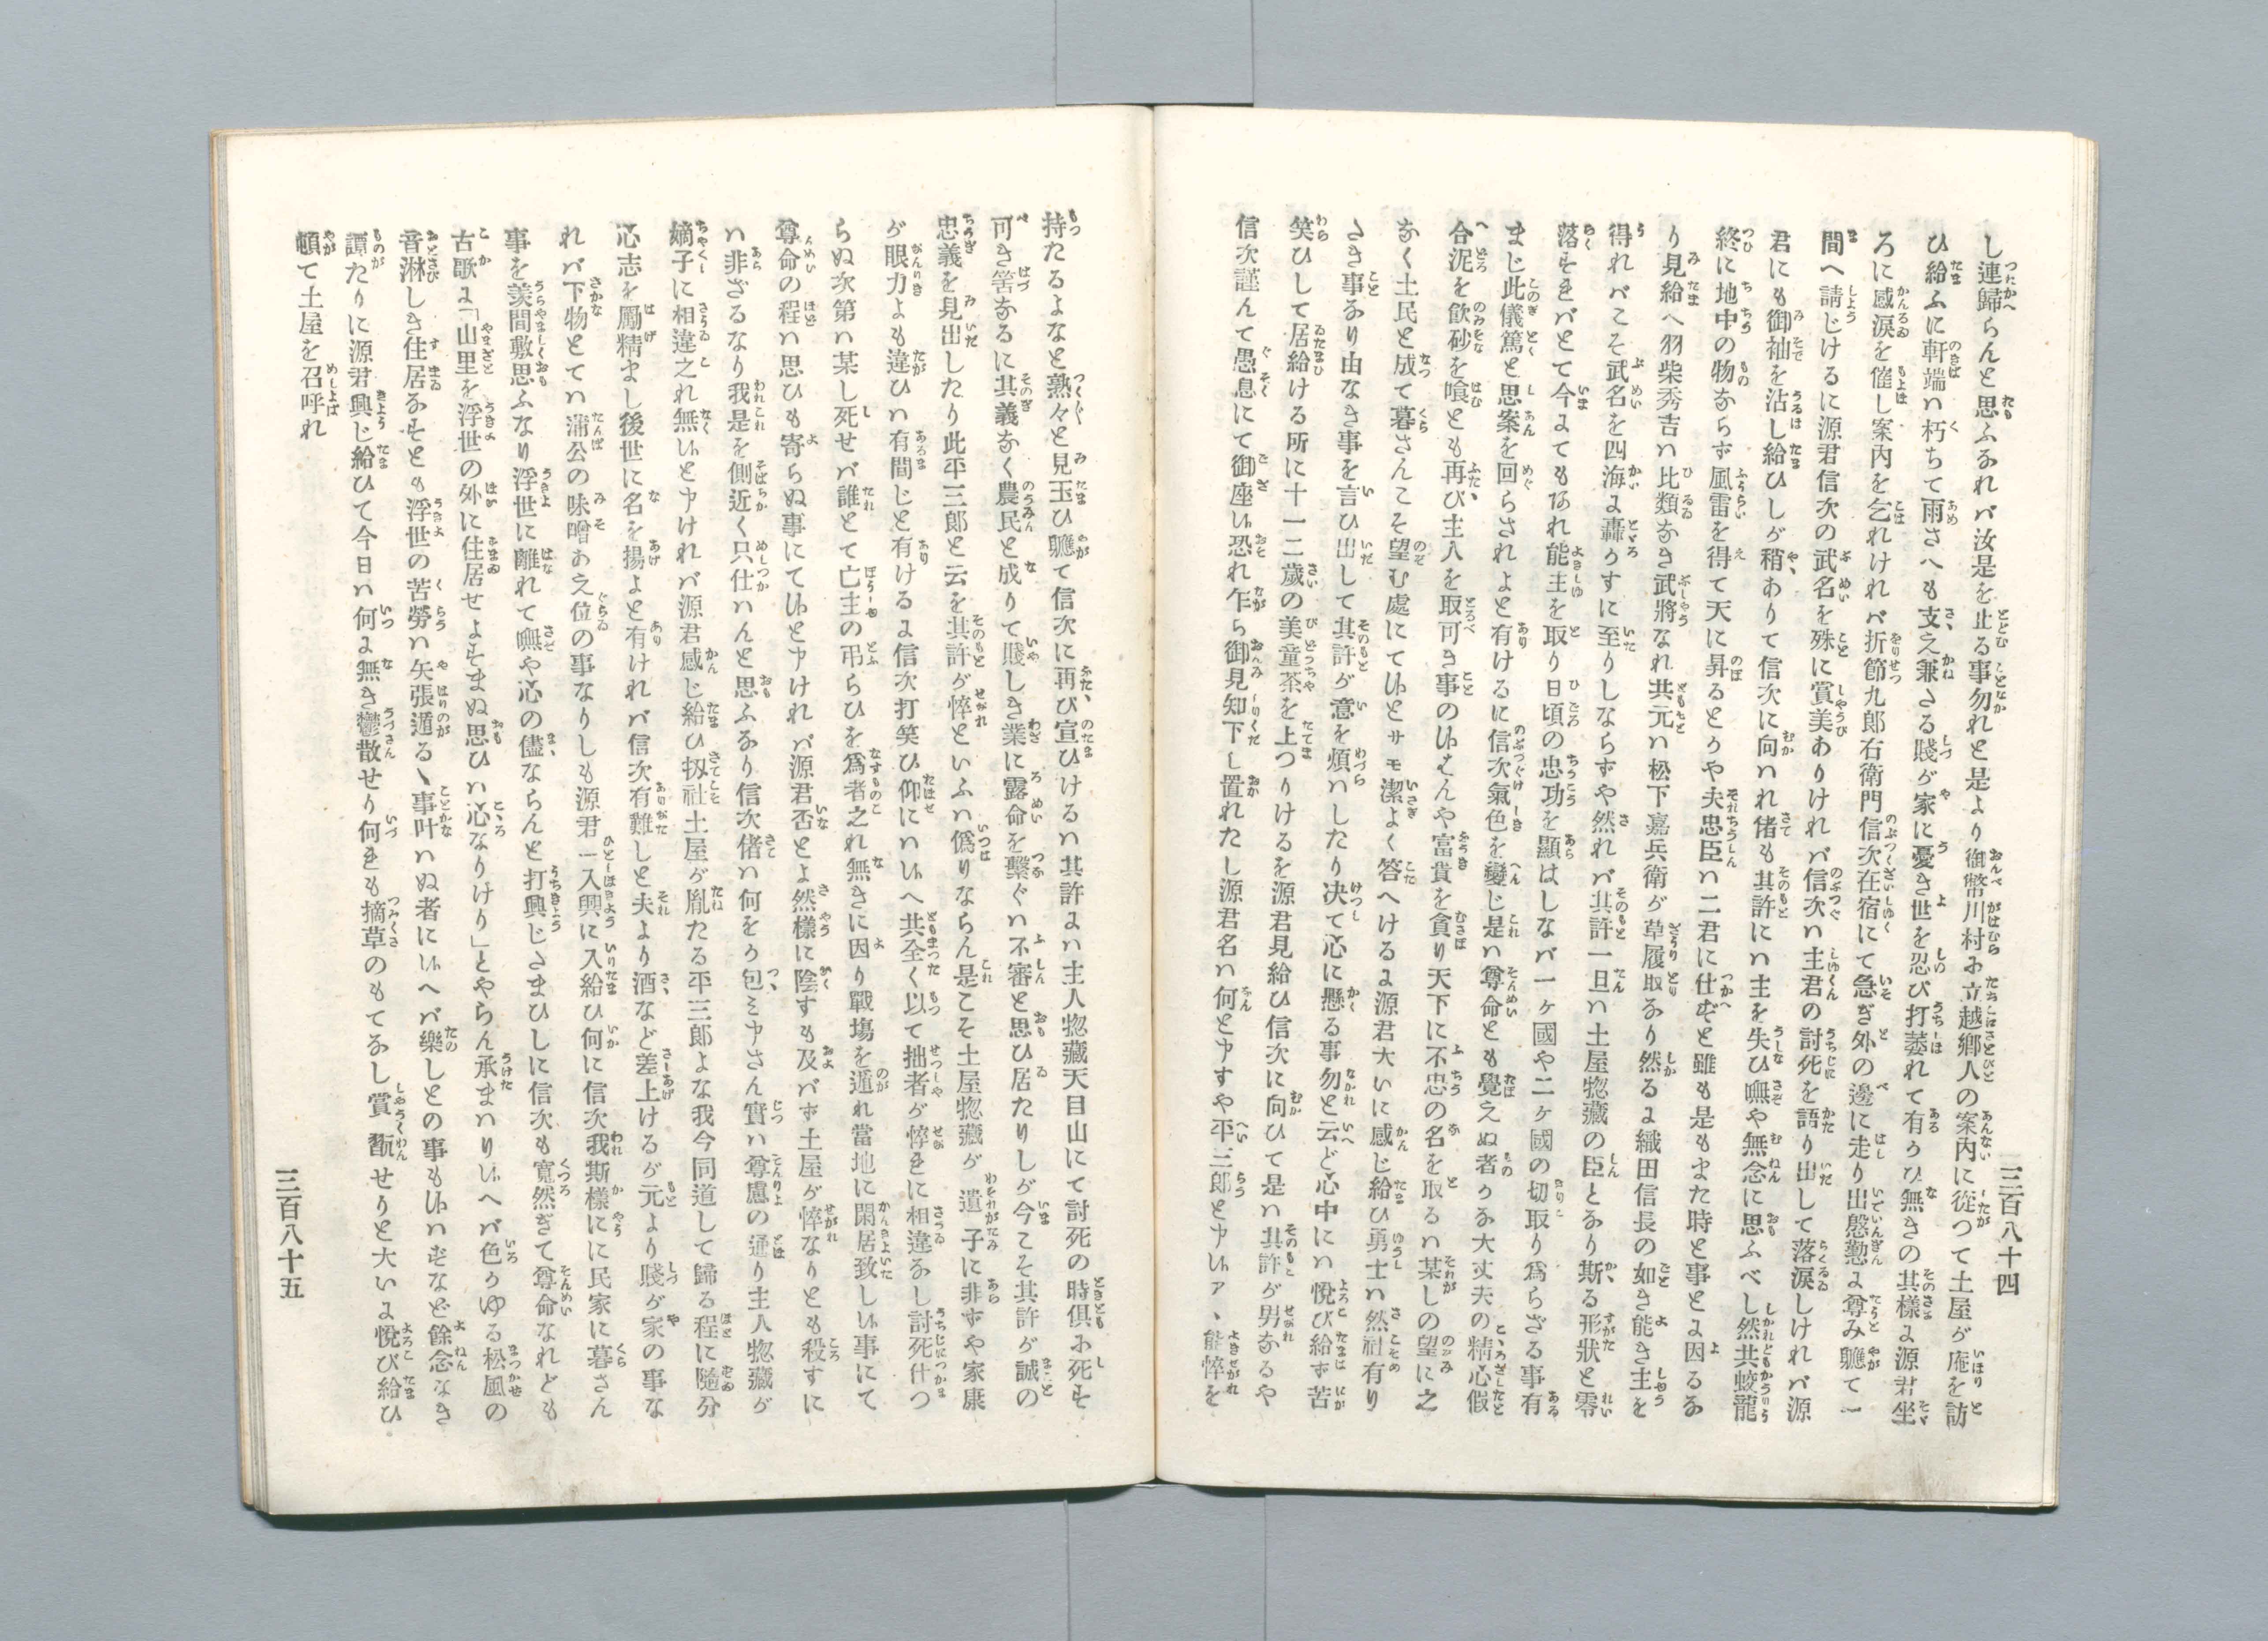 三百八十四
し連歸らんと思ふなれバ汝是を止る事勿れと是より御幣川村に立越郷人の案内に從つて土屋が庵を訪
ひ給ふに軒端ハ朽ちて雨さへも支え兼さる賤が家に憂き世を忍び打萎れて有るひ無きの其樣に源君坐
ろに感涙を催し案内を乞れけれバ折節九郎右衛門信次在宿にて急ぎ外の邊に走り出慇懃に尊み軈て一
間へ請じけるに源君信次の武名を殊に賞美ありけれバ信次ハ主君の討死を語り出して落涙しけれバ源
君にも御袖を沾し給ひしが稍ありて信次に向ハれ偖も其許にハ主を失ひ嘸や無念に思ふべし然共蛟龍
終に地中の物ならず風雷を得て天に昇るとかや夫忠臣ハ二君に仕ずと雖も是もまた時と事とに因るな
り見給へ羽柴秀吉ハ比類なき武將なれ共元ハ松下嘉兵衛が草履取なり然るに織田信長の如き能き主を
得れバこそ武名を四海に轟かすに至りしならずや然れバ其許一旦ハ土屋惣藏の臣となり斯る形狀と零
落すれバとて今にてもあれ能主を取り日頃の忠功を顯はしなバ一ヶ國や二ヶ國の切取り爲らざる事有
まじ此儀篤と思案を回らされよと有けるに信次氣色を變じ是ハ尊命とも覺えぬ者かな大丈夫の精心假
令泥を飲砂を喰とも再び主人を取可き事のいはんや富貴を貪り天下に不忠の名を取るハ某しの望に之
なく土民と成て暮さんこそ望む處にていとサモ潔よく答へけるに源君大いに感じ給ひ勇士ハ然社有り
さき事なり由なき事を言ひ出して其許が意を煩ハしたり决て心に懸る事勿と云ど心中にハ悅び給ず苦
笑ひして居給ける所に十一二歲の美童茶を上つりけるを源君見給ひ信次に向ひて是ハ其許が男なるや
信次謹んて愚息にて御座い恐れ乍ら御見知下し置れたし源君名ハ何と申すや平三郎と申いァ、能悴を
持たるよなと熟々と見玉ひ軈て信次に再び宣ひけるハ其許にハ主人惣藏天目山にて討死の時俱に死す
可き筈なるに其義なく農民と成りて賤しき業に露命を繫ぐハ不審と思ひ居たりしが今こそ其許が誠の
忠義を見出したり此平三郎と云を其許が悴といふハ僞りならん是こそ土屋惣藏が遺子に非ずや家康
が眼力よも違ひハ有間じと有けるに信次打笑ひ仰にハいへ共全く以て拙者が悴そに相違なし討死仕つ
らぬ次第ハ某し死せバ誰とて亡主の弔らひを爲者之れ無きに因り戰塲を遁れ當地に閑居致しい事にて
尊命の程ハ思ひも寄らぬ事にていと申けれバ源君否とよ然樣に陰すも及バず土屋が悴なりとも殺すに
ハ非ざるなり我是を側近く只仕ハんと思ふなり信次偖ハ何をか包ミ申さん實ハ尊慮の通り主人惣藏が
嫡子に相違之れ無いと申けれバ源君感じ給ひ扨社土屋が胤たる平三郎よな我今同道して歸る程に隨分
心志を勵精まし後世に名を揚よと有けれバ信次有難しと夫より酒など差上けるが元より賤が家の事な
れバ下物とてハ蒲公の味噌あえ位の事なりしも源君一入興に入給ひ何に信次我斯樣にに民家に暮さん
事を羨間敷思ふなり浮世に離れて嘸や心の儘ならんと打興じさまひしに信次も寬然ぎて尊命なれども
古歌に「山里を浮世の外に住居せよすまぬ思ひハ心なりけり」とやらん承まハりいへバ色かゆる松風の
音淋しき住居なすとも浮世の苦勞ハ矢張遁る〻事叶ハぬ者にいへバ樂しとの事もいハずなど餘念なき
譚たりに源君興じ給ひて今日ハ何に無き鬱散せり何そも摘草のもてなし賞翫せりと大いに悅び給ひ
頓て土屋を召呼れ
三百八十五